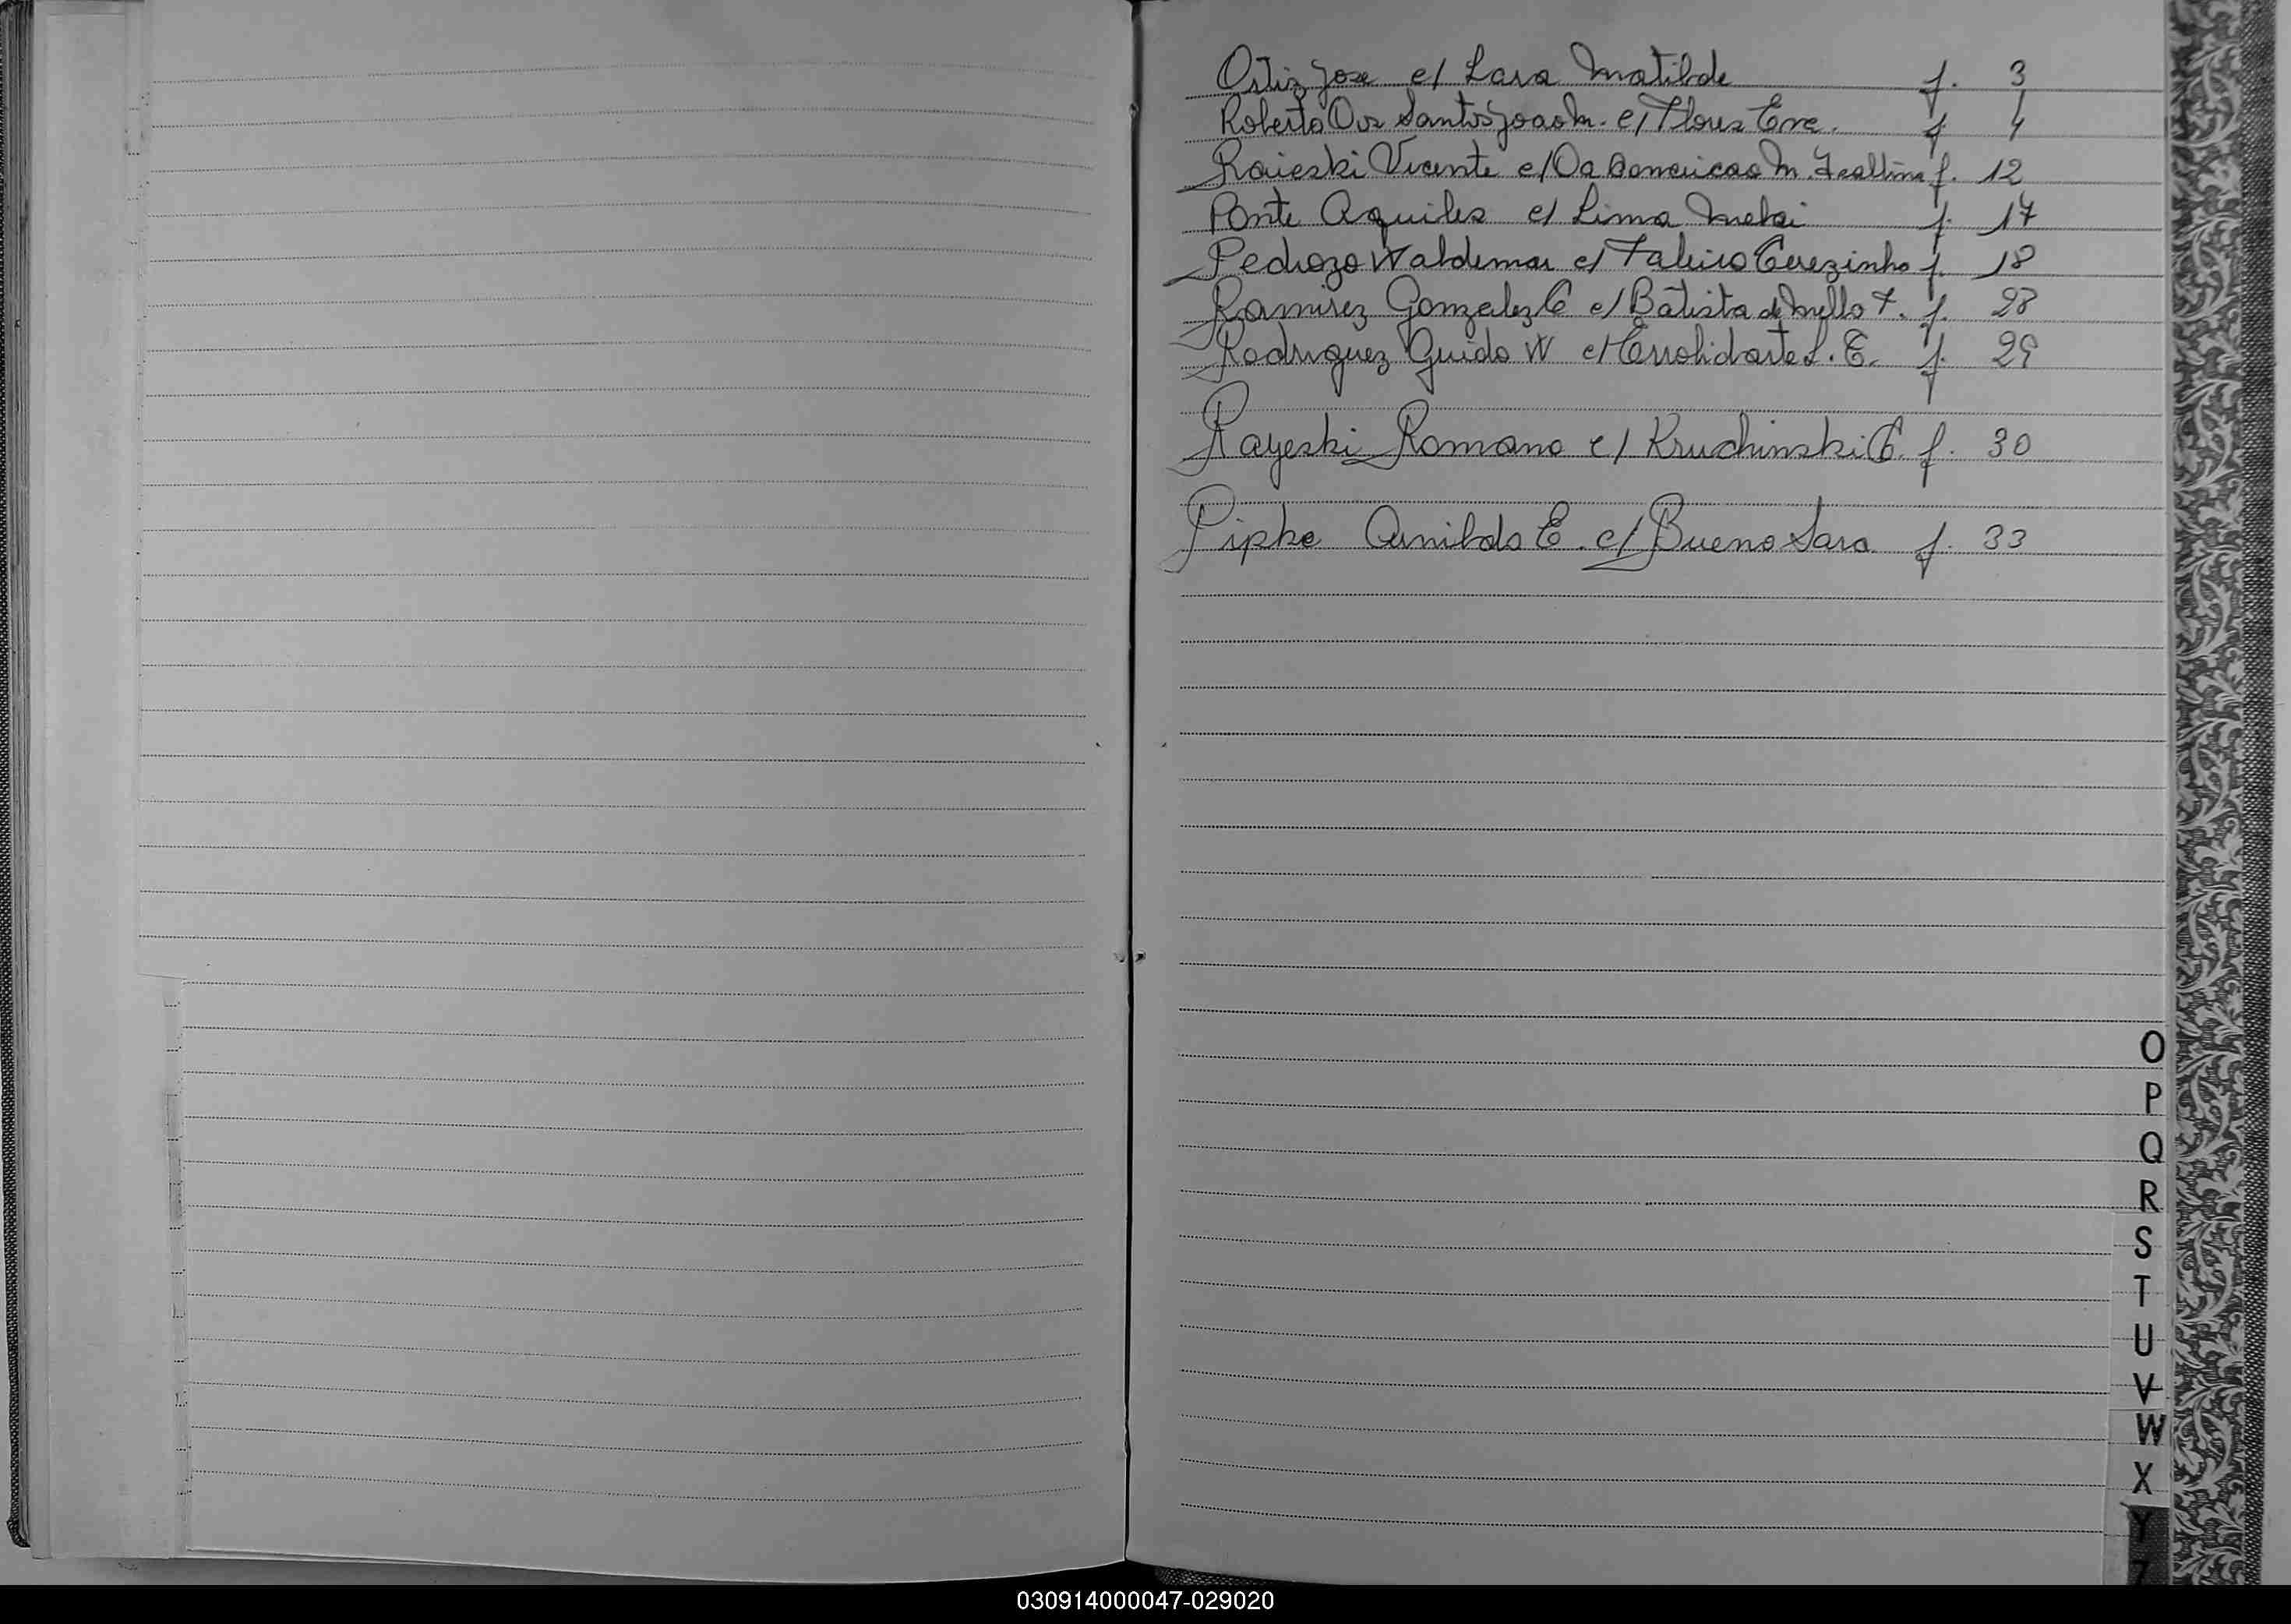 Ortiz Jose c/ Lara Matilde f. 3
Roberto Dos Santos Joao M. c/ Flores Eve. f 4
Raieski Vicente c/ Da Conceicao M. f. 12
Ponte Aquiles c/ Lima f. 17
Pedrozo Waldemar c/ Terezinha f. 18
Ramirez Gonzalez C c/ Batista de Mello f. 28
Rodriguez Guido W c/ L. E. f. 29
Rayeski Romano c/ Kruchinski C. f. 30
Pipke Arnildo E. c/ Bueno Sara f. 33
O
P
Q
R
S
T
U
V
W
X
Y
Z
030914000047-029020